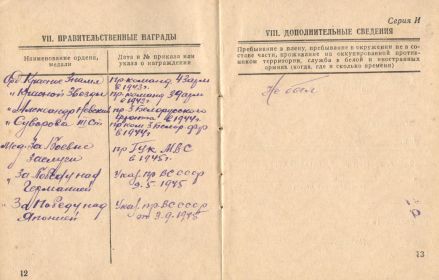 VII. ПРАВИТЕЛЬСТВЕННЫЕ НАГРАДЫ
Наименование ордена, медали
Дата и № приказа или указа о награждении
Орд. Красное Знамя
пр. команд. 43 арм
в 1943 г.
" Красной Звезды
пр. команд 39 арм
в 1943 г.
" Александр Невский
пр. ком. 3 Белорусского
фронта в 1944 г.
" Суворова III ст
пр. ком. 3 Белор. фр
в 1944 г.
Мед. За боевые
заслуги
пр ГУК МВС
в 1945 г.
" За победу над
Германией
Указ. пр ВС СССР
9.5-1945
" За победу над
Японией
Указ. пр ВС СССР
от 3.9-1945
12
Серия И
VIII. ДОПОЛНИТЕЛЬНЫЕ СВЕДЕНИЯ
Пребывание в плену, пребывание в окружении не в со-
ставе части, проживание на оккупированной против-
ником территории, служба в белой и иностранных
армиях (когда, где и сколько времени)
Не был
13